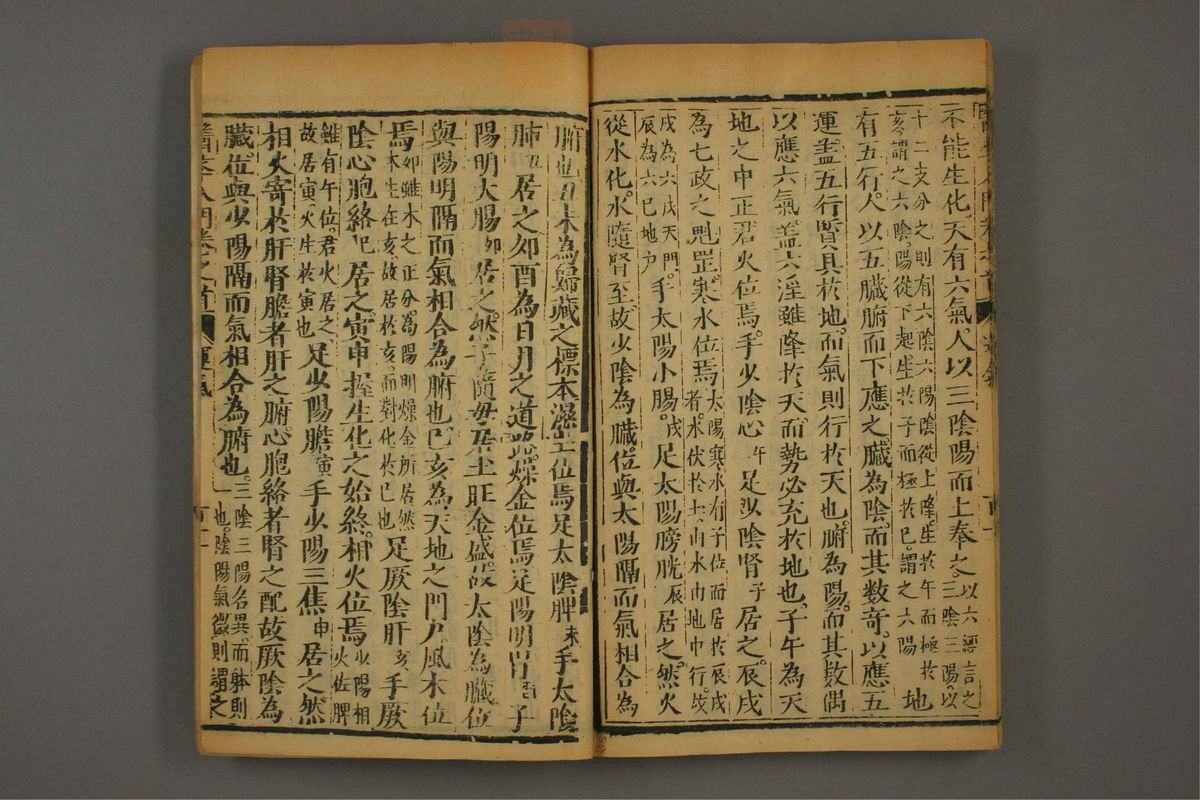 不能生化天有六氣人以三陰陽而上奉之以六經言之三陰三陽以
十二支分之則有六陰六陽陰從上降生於午而極於
亥謂之六陰陽從下起生於子而極於巳謂之六陽地
有五行人以五臟腑而下應之臟為陰而其数竒以應五
運盖五行皆具於地而氣則行於天也腑為陽而其数偶
以應六氣盖六淫雖降於天而勢必充於地也子午為天
地之中正君火位焉手少陰心午足少陰腎子居之辰戌
為七政之魁罡寒水位焉太陽寒水有子位而居於辰戌
者水伏於土由水由地中行故
戌為六戊天門
辰為六巳地户手太陽小腸戌足太陽膀胱辰居之然火
從水化水隨腎至故少陰為臟位與太陽隔而氣相合為
腑也丑未為歸藏之標本濕土位焉足太陰脾未手太陰
肺丑居之卯酉為日月之道路燥金位焉足陽明胃酉手
陽明大腸卯居之然子隨母居土旺金盛故太陰為臟位
與陽明隔而氣相合為腑也巳亥為天地之門户風木位
焉卯雖木之正分為陽明燥金所居然
木生在亥故居於亥而對化於巳也足厥陰肝亥手厥
陰心胞絡巳居之寅申握生化之始終相火位焉少陽相
火佐脾
雖有午位君火居之
故居寅火生於寅也足少陽膽寅手少陽三焦申居之然
相火寄於肝腎膽者肝之腑心胞絡者腎之配故厥陰為
臟位與少陽隔而氣相合為腑也三陰三陽名異而躰則
也陰陽氣微則謂之
運氣